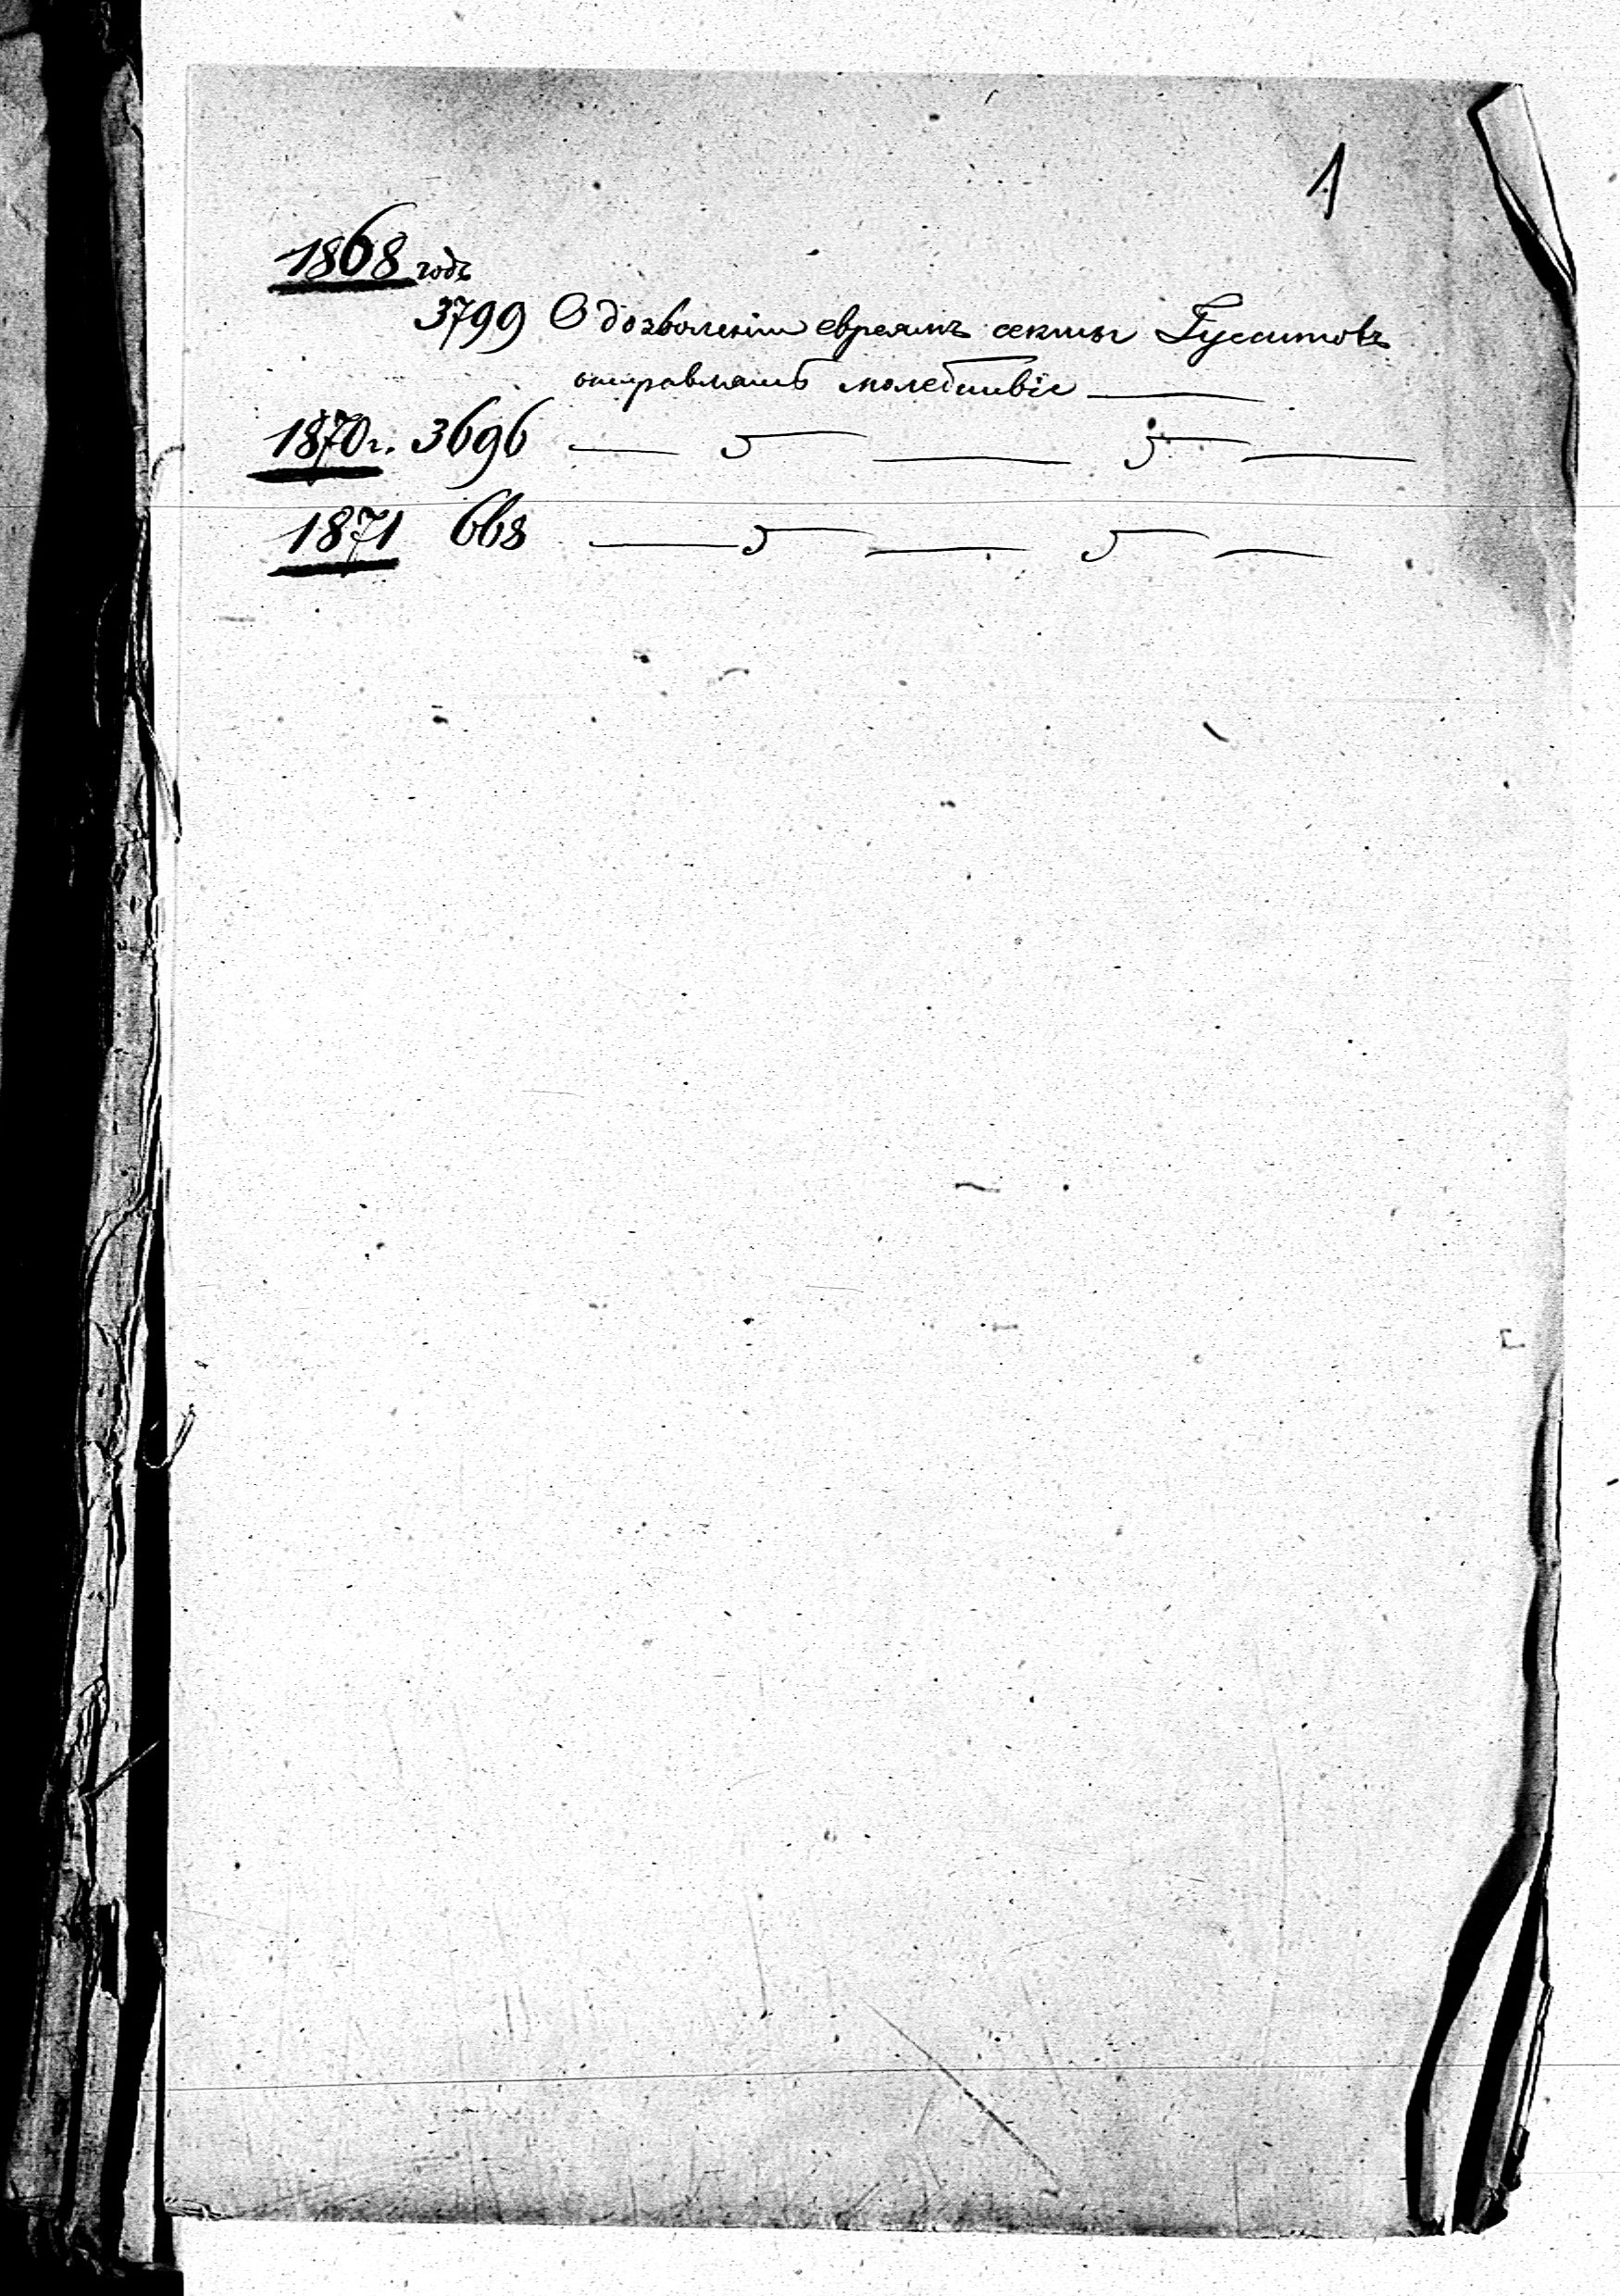 1
1868 годъ
3799 О дозволеніи евреямъ секты Гуситовъ
отправлять молебствіе —
1870 г. 3696 — „ — „ —
1871 668 — „ — „ —